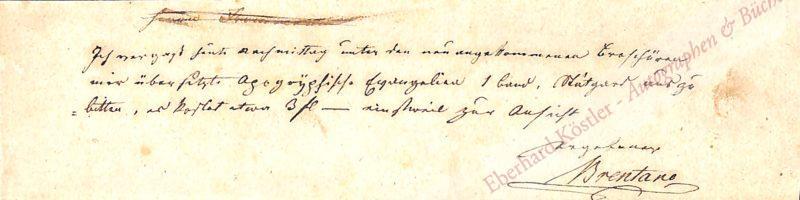 Ich vergaß heute Nachmittag unter den neu angekommenen Broschüren
mir übersetzte Apogryphische Evangelien 1 band, Stutgard aus zu
=bitten, es kostet etwa 3 fl — einstweil zur Ansicht
ergebener
Brentano
Eberhard Köstler - Autographen & Büch